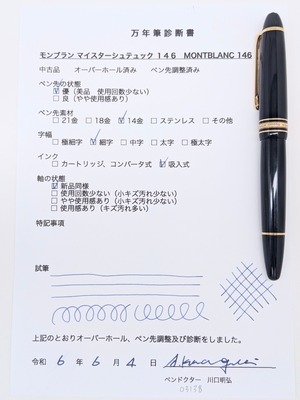 万年筆診断書
モンブラン マイスターシュテュック 146 MONTBLANC 146
中古品 オーバーホール済み ペン先調整済み
ペン先の状態
☑優（美品 使用回数少ない）
□良（やや使用感あり）
ペン先素材
□21金 □18金 ☑14金 □ステンレス □その他
字幅
□極細字 ☑細字 □中字 □太字 □極太字
インク
□カートリッジ、コンバータ式 ☑吸入式
軸の状態
☑新品同様
□使用回数少ない（小キズ汚れ少ない）
□やや使用感あり（小キズ汚れ少ない）
□使用感あり（キズ汚れ多い）
特記事項
試筆
上記のとおりオーバーホール、ペン先調整及び診断をしました。
令和 6年 6月 4日
ペンドクター 川口明弘